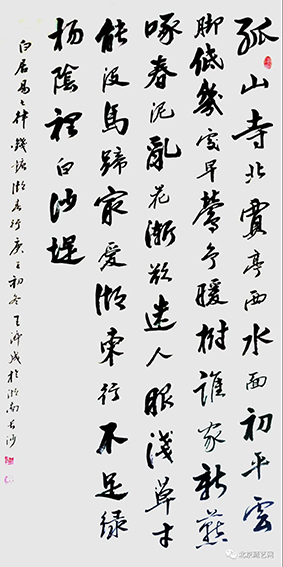 孤山寺北賈亭西水面初平雲
脚低幾處早鶯争暖樹誰家新燕
啄春泥亂花漸欲迷人眼淺草才
能没馬蹄最愛湖東行不足绿
杨陰裡白沙堤
白居易七律錢塘湖春行庚子初冬於湖南長沙